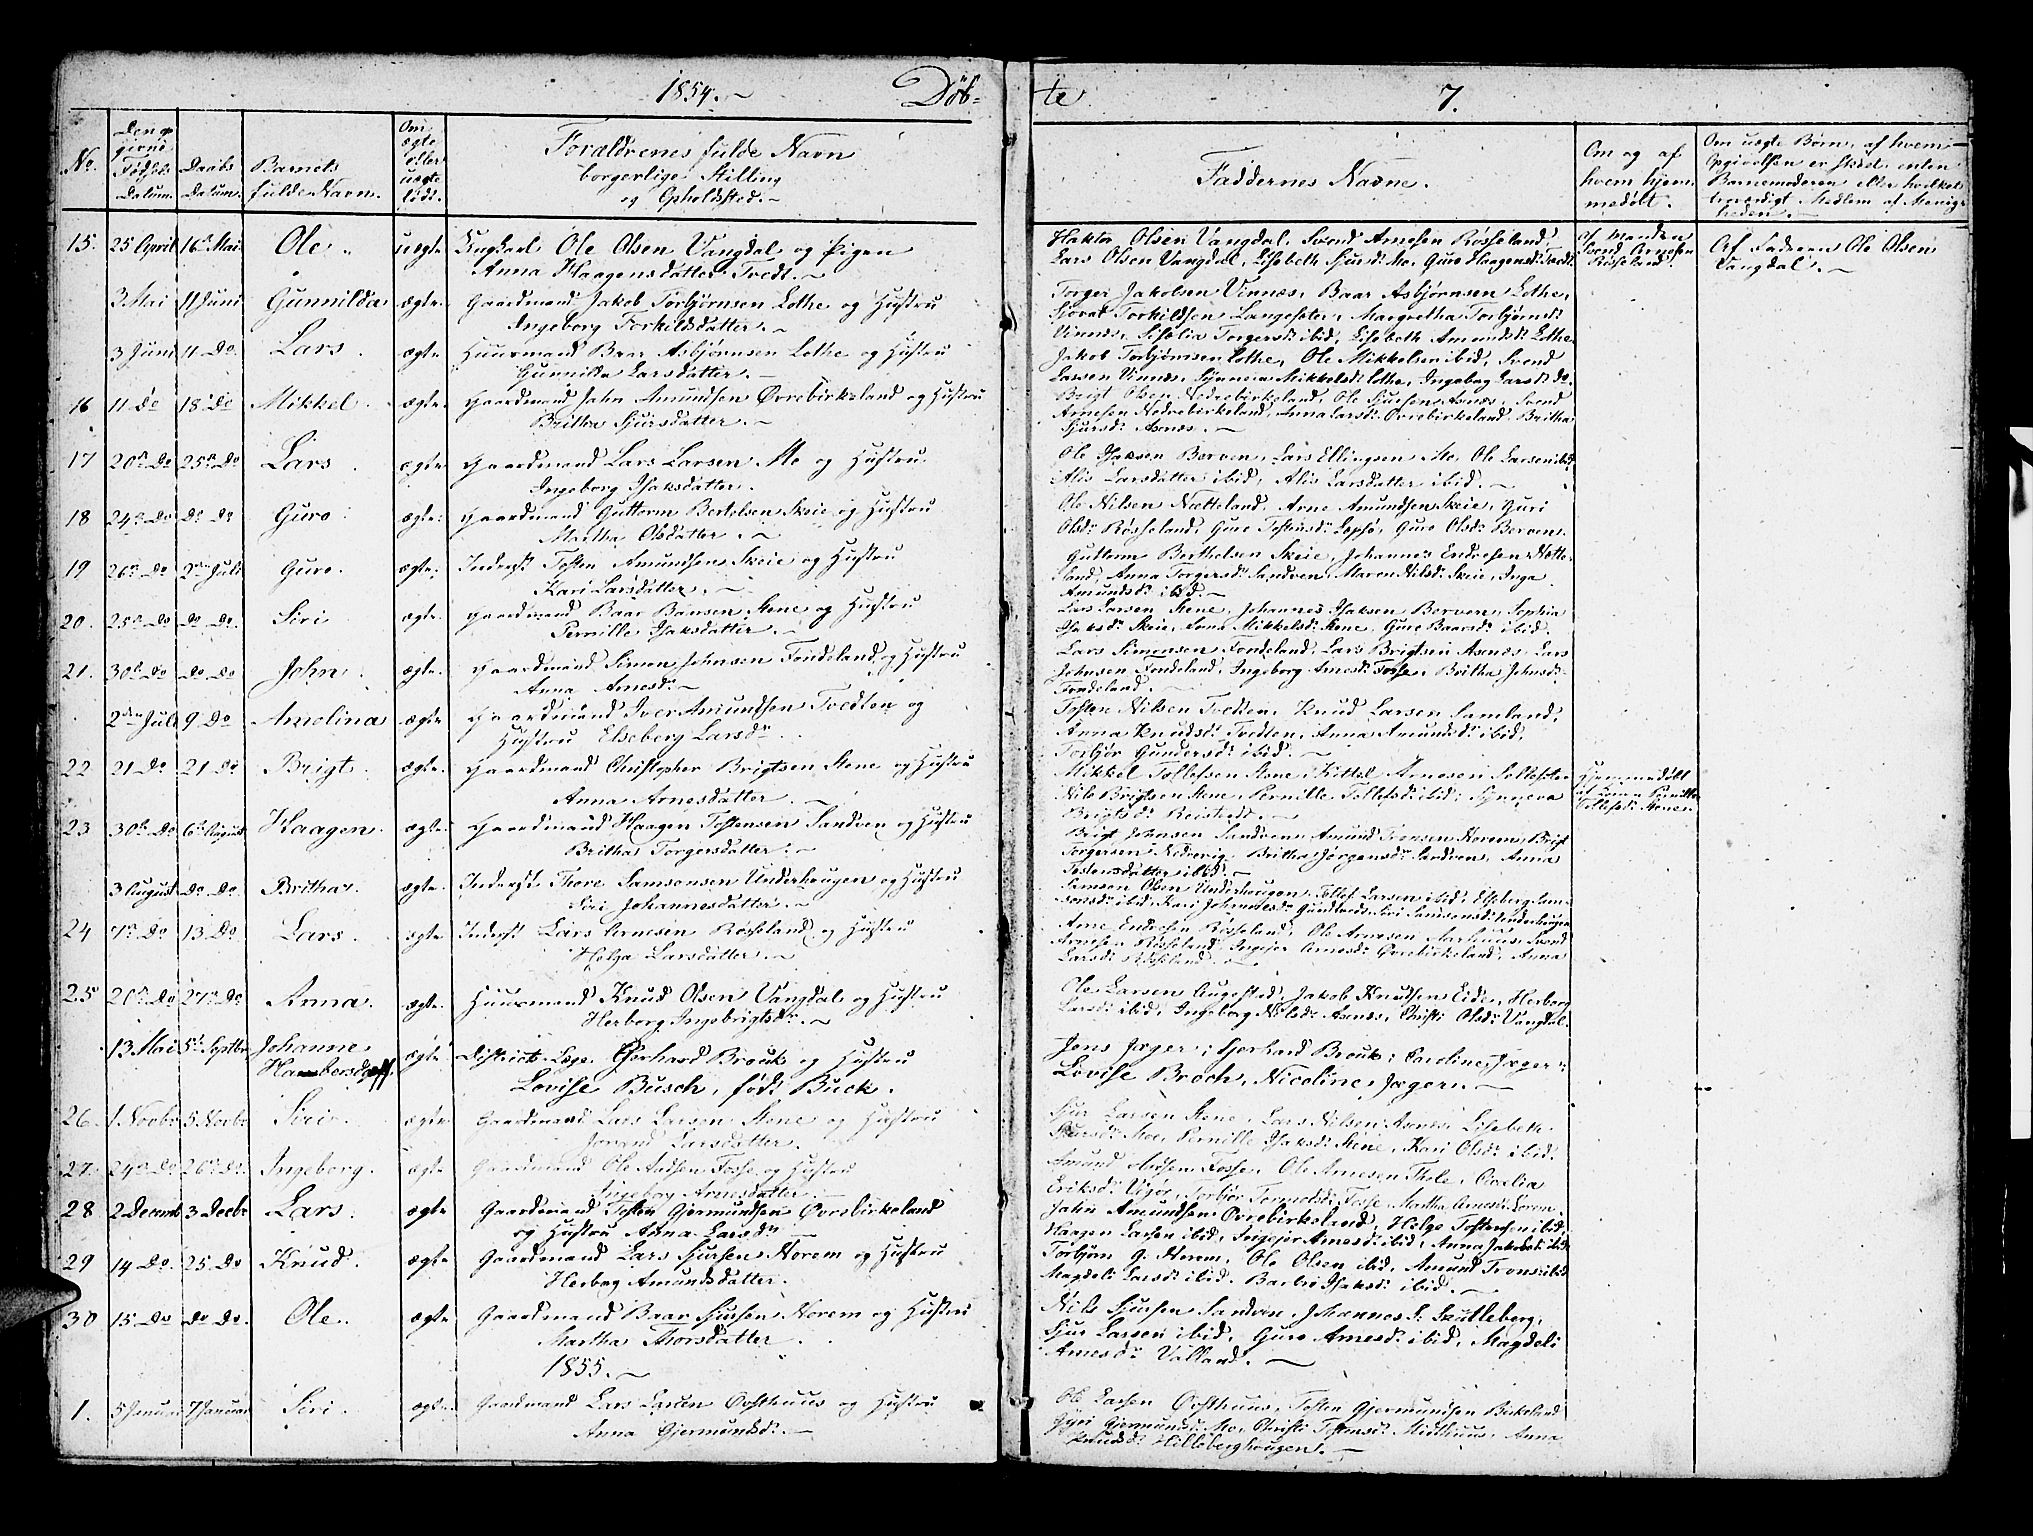 1854.
Døb-
te
7.
No.
Den opgivne Fødsels Datum.
Daabs Datum.
Barnets fulde Navn.
Om ægte eller uægte født.
Forældrenes fulde Navn
borgerlige Stilling
og Opholdssted.
Faddernes Navne.
Om og af hvem hjemmedøbt.
Om uægte Børn, af hvem Opgivelsen er skeet, enten Barnemoderen eller hvilket
15. 25 April 16 Mai Ole uægte Ungkarl Ole Olsen Vangdal og Pigen
Anna Haagensdatter Tvedt.
Svend Arnesen Røsseland,
Lars Olsen Vangdal, Lisebeth Sjursd. Mo, Guro Haagensd. Tvedt.
af manden Svend Arnesen Røsseland.
Af Faderen Ole Olsen Vangdal.
3 Mai 11 Juni Gunnilda ægte Gaardmand Jakob Torbjørnsen Lothe og Hustru
Ingeborg Torkildsdatter.
Torger Jakobsen Vinnæs, Baar Asbjørnsen Lothe,
Torkildsen Langeseter, Margretha Torbjørnsd.
Vinnæs, Torgersd. ibid, Lisebeth Amundsd. Lothe
3 Juni 11 Do. Lars ægte Huusmand Baar Asbjørnsen Lothe og Hustru
Gunnilda Larsdatter.
Jakob Torbjørnsen Lothe, Ole Mikkelsen ibid, Svend
Larsen Vinnæs, Synneva Mikkelsd. Lothe, Ingeborg Larsd. do.
16 11 Do 18 Do Mikkel ægte Gaardmand John Amundsen Øvrebirkeland og Hustru
Britha Sjursdatter.
Brigt Olsen Nedrebirkeland, Ole Sjursen Asnæs, Svend
Arnesen Nedrebirkeland, Anna Larsd. Øvrebirkeland, Britha
Sjursd. Asnæs.
17 20 Do 25 Do Lars ægte Gaardmand Lars Larsen Mo og Hustru
Ingeborg Isaksdatter.
Ole Isaksen Berven, Lars Ellingsen Mo, Ole Larsen ibid,
Alis Larsdatter ibid, Alis Larsdatter ibid.
18 24 Do Do Do Guro ægte Gaardmand Guttorm Bertelsen Skeie og Hustru
Martha Olsdatter.
Ole Nilsen Netteland, Arne Amundsen Skeie, Guri
Olsd. Røsseland, Guro Tostensd. Guro Olsd. Berven.
19 26 Do 2 Juli Guro ægte Inderst Tosten Amundsen Skeie og Hustru
Kari Larsdatter.
Guttorm Berthelsen Skeie, Johannes Endresen Nette-
land, Anna Torgersd. Sandven, Maren Nilsd. Skeie, Inga
Amundsd. ibid.
20. 25 Do Do Do. Siri ægte Gaardmand Baar Bansen Stene og Hustru
Pernille Isaksdatter.
Lars Larsen Stene, Johannes Isaksen Berven, Sophia
Isaksd. Skeie, Mikkelsd. Stene, Guro Baarsd. ibid.
21. 30 Do Do Do John ægte Gaardmand Simon Johnsen Fondeland og Hustru
Anna Arnesd.
Lars Simonsen Fondeland, Lars Brigtsen Asnæs, Lars
Johnsen Fondeland, Ingeborg Arnesd. Fosse, Britha Johnsd.
Fondeland.
2 Juli 9 Do Amolina ægte Gaardmand Iver Amundsen Tvedten og
Hustru Elseberg Larsd.
Tosten Nilsen Tvedten, Knud Larsen Samland,
Anna Knudsd. Tvedten, Anna Amundsd. ibid,
Torbjør Gundersd. ibid.
22 21 Do 21 Do Brigt ægte Gaardmand Christopher Brigtsen Stene og Hustru
Anna Arnesdatter.
Mikkel Tollefsen Stene, Kittel Arnesen
Nils Brigtsen Stene, Pernille Tollefsd. ibid, Synneva
Brigtsd.
Hjemmedøbt af Pernilla Tollefsd. Stene.
23 30 Do 6 August Haagen ægte Gaardmand Haagen Tostensen Sandven og Hustru
Britha Torgersdatter.
Brigt Johnsen Sandven, Amund Tronsen Norem, Brigt
Torgersen Britha Jørgensd. Sandven, Anna
Tostensdatter ibid.
3 August Do Do Britha ægte Inderst Thore Samsonsen Underhaugen og Hustru
Siri Johannesdatter.
Samson Olsen Underhaugen, Tollef Larsen ibid, Elseberg Sam-
sonsd. ibid, Kari Johannesd. Siri Samsonsd. Underhaugen
24 7 Do 13 Do Lars ægte Inderst Lars Arnesen Røsseland og Hustru
Helga Larsdatter.
Arne Endresen Røsseland, Ole Arnesen Aarhuus, Svend
Arnesen Røsseland, Ingejer Arnesd. Øvrebirkeland, Anna
Larsd. Røsseland.
25 20 Do 27 Do Anna ægte Huusmand Knud Olsen Vangdal og Hustru
Herborg Ingebrigtsd.
Ole Larsen Augestad, Jakob Knudsen Eide, Herborg
Larsd. ibid, Ingeborg Nilsd. Asnæs, Christi Olsd. Vangdal.
13 Mai 5 Septbr Johanne ægte Districts Læge Gerhard Brouk og Hustru
Lovise Busch, født Buck.
Jens Jæger, Gerhard Brouk, Caroline Jæger,
Lovise Broch, Nicoline Jæger.
26. 1 Novbr 5 Novbr Siri ægte Gaardmand Lars Larsen Stene og Hustru
Jorand Larsdatter.
Sjur Larsen Stene, Lars Nilsen Asnæs, Lisebeth
Sjursd. Mo, Pernille Isaksd. Stene, Kari Olsd. ibid.
27. 24 Do 26 Do. Ingeborg ægte Gaardmand Ole Fosse og Hustru
Ingeborg Arnesdatter.
Amund Fosse, Ole Arnesen
Eriksd. Torbjør Fosse, Martha Arnesd. Norem.
28 2 Decemb 3 Decbr Lars ægte Gaardmand Tosten Gjermundsen Øvrebirkeland
og Hustru Anna Larsd.
John Amundsen Øvrebirkeland, Helge Tostensen ibid,
Haagen Larsen ibid, Ingejer Arnesd. ibid, Anna Jakobsd. ibid
29 14 Do. 25 Do Knud ægte Gaardmand Lars Sjursen Norem og Hustru
Herborg Amundsdatter.
Torbjørn G. Norem, Ole Olsen ibid, Amund Trons. ibid
Magdeli Larsd. ibid, Barbro Isaksd. ibid.
30 15 Do Do Do. Ole ægte Gaardmand Baar Sjursen Norem og Hustru
Martha Thorsdatter.
Nils Sjursen Sandven, Johannes S. Skutleberg,
Sjur Larsen ibid, Guro Arnesd. ibid, Magdeli
Arnesd. Valland.
1855.
1. 5 Januar 7 Januar Siri ægte Gaardmand Lars Larsen Oosthuus og Hustru
Anna Gjermundsd.
Ole Larsen Oosthuus, Tosten Gjermundsen Birkeland
Gyri Gjermundsd. Mo, Christi Tostensd. Midthuus, Anna
Knudsd. Hilleberghaugen.